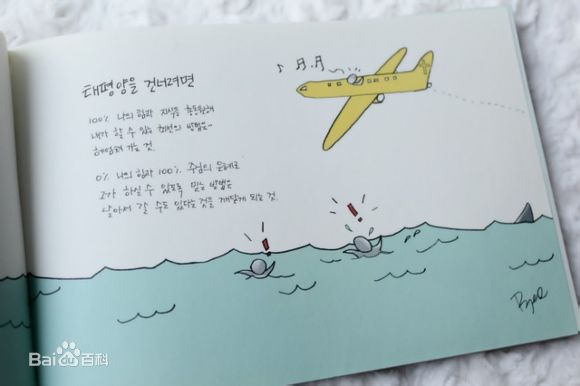 태평양을 건너려면
100% 나의 힘과 지식을 총동원해
내가 할 수 있는 최선의 방법은
헤엄쳐 가는 것.
0% 나의 힘과 100% 주님의 은혜로
그가 하실 수 있도록 믿는 방법은
날아서 갈 수도 있다는 것을 깨닫게 되는 것.
Bai du 百科